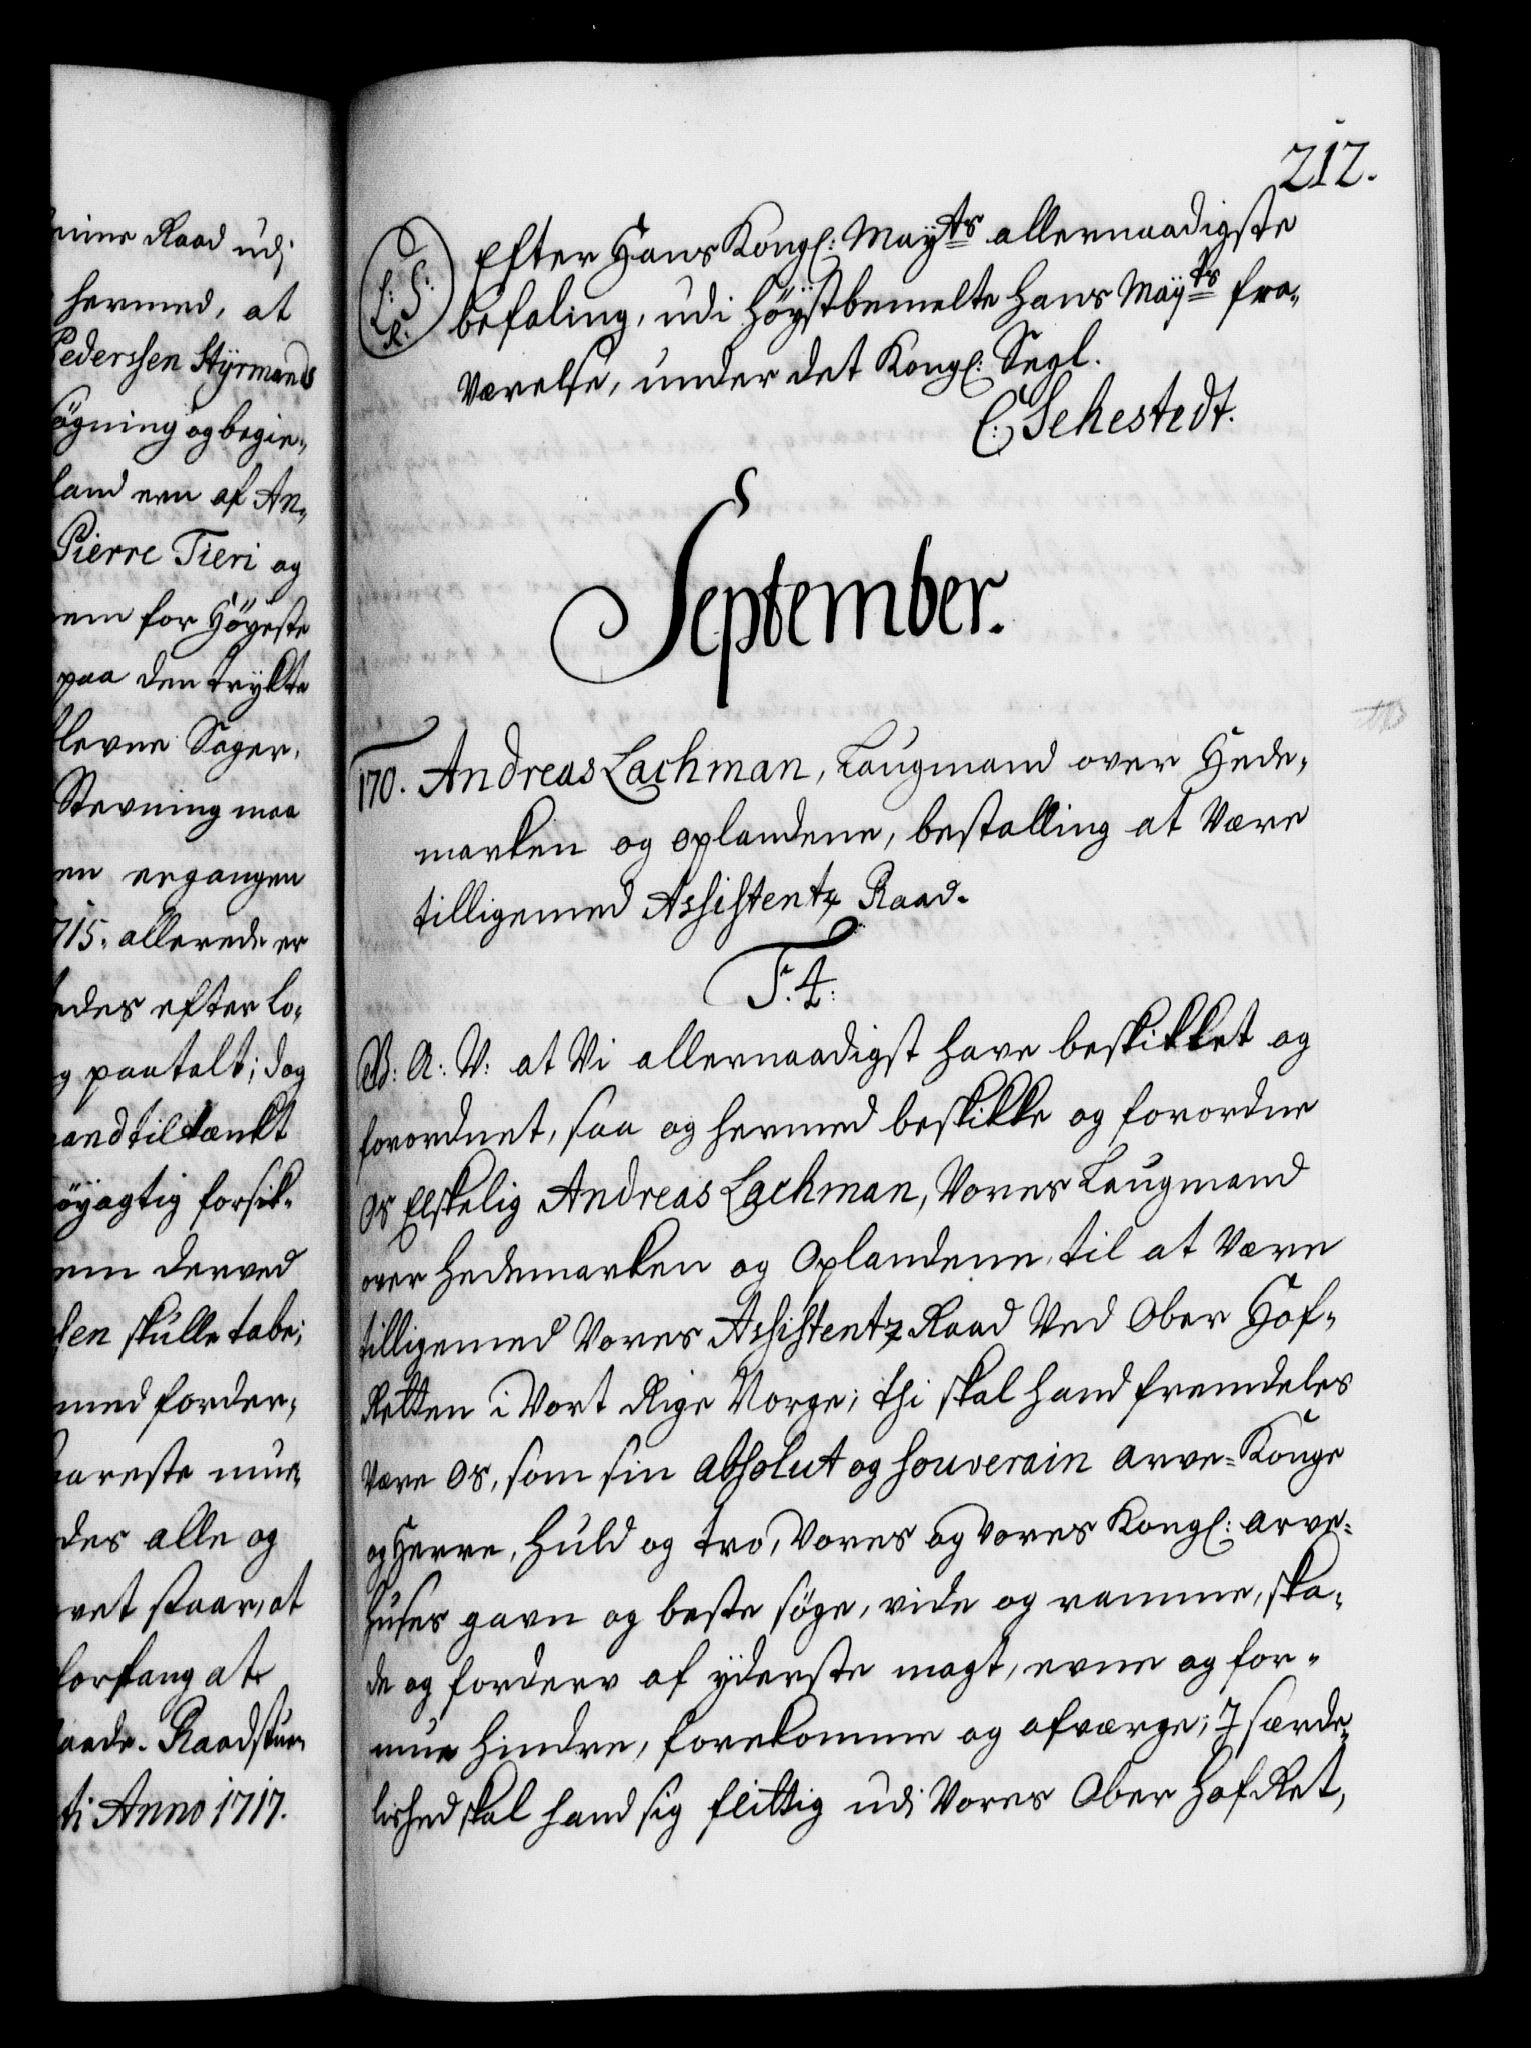 mine Raad udj
hermed, at
Pederssen Styrmands
øgning og begie¬
land een af An¬
Pierre Tieri og
dem for Höyeste
paa den trykte
blevne Sager,
Stevning maa
en ergangen
715. allerede er
edes efter Lo¬
g paatalt; dog
and tiltænkt
öyagtig forsik¬
em derved
sen skulle tabe;
med forder¬
areste mue¬
des alle og
vet staar, at
forfang at
aade. Raadstuen
ti Anno 1717.
212.
L: S:
R:
Efter Hans Kongl: Mayts allernaadigste
befaling, udi Höystbemelte Hans Mayts fra¬
Værelse, under det Kongl: Segl.
C: Sehestedt.
September.
170. Andreas Lachman, Laugmand over Hede¬
marken og Oplandene, bestalling at Være
tilligemed Assistentz Raad.
F. 4:
G: A: V: at Vi allernaadigst have beskikket og
forordnet, saa og hermed beskikke og forordne
Os Elskelig Andreas Lachman, Vores Laugmand
over Hedemarken og Oplandene, til at Være
tilligemed Vores Assistentz Raad Ved Ober Hof¬
Retten i Vort Rige Norge; thi skal hand fremdeles
Være Os, som sin absolut og souverain arve-Konge
og Herre, Huld og tro, Vores og Vores Kongl: arve¬
Huses gavn og beste søge, vide og ramme, ska¬
de og forderv af yderste magt, evne og for¬
mue hindre, forekomme og afværge; J særde¬
lished skal hand sig flittig udi Vores Ober Hof Ret,